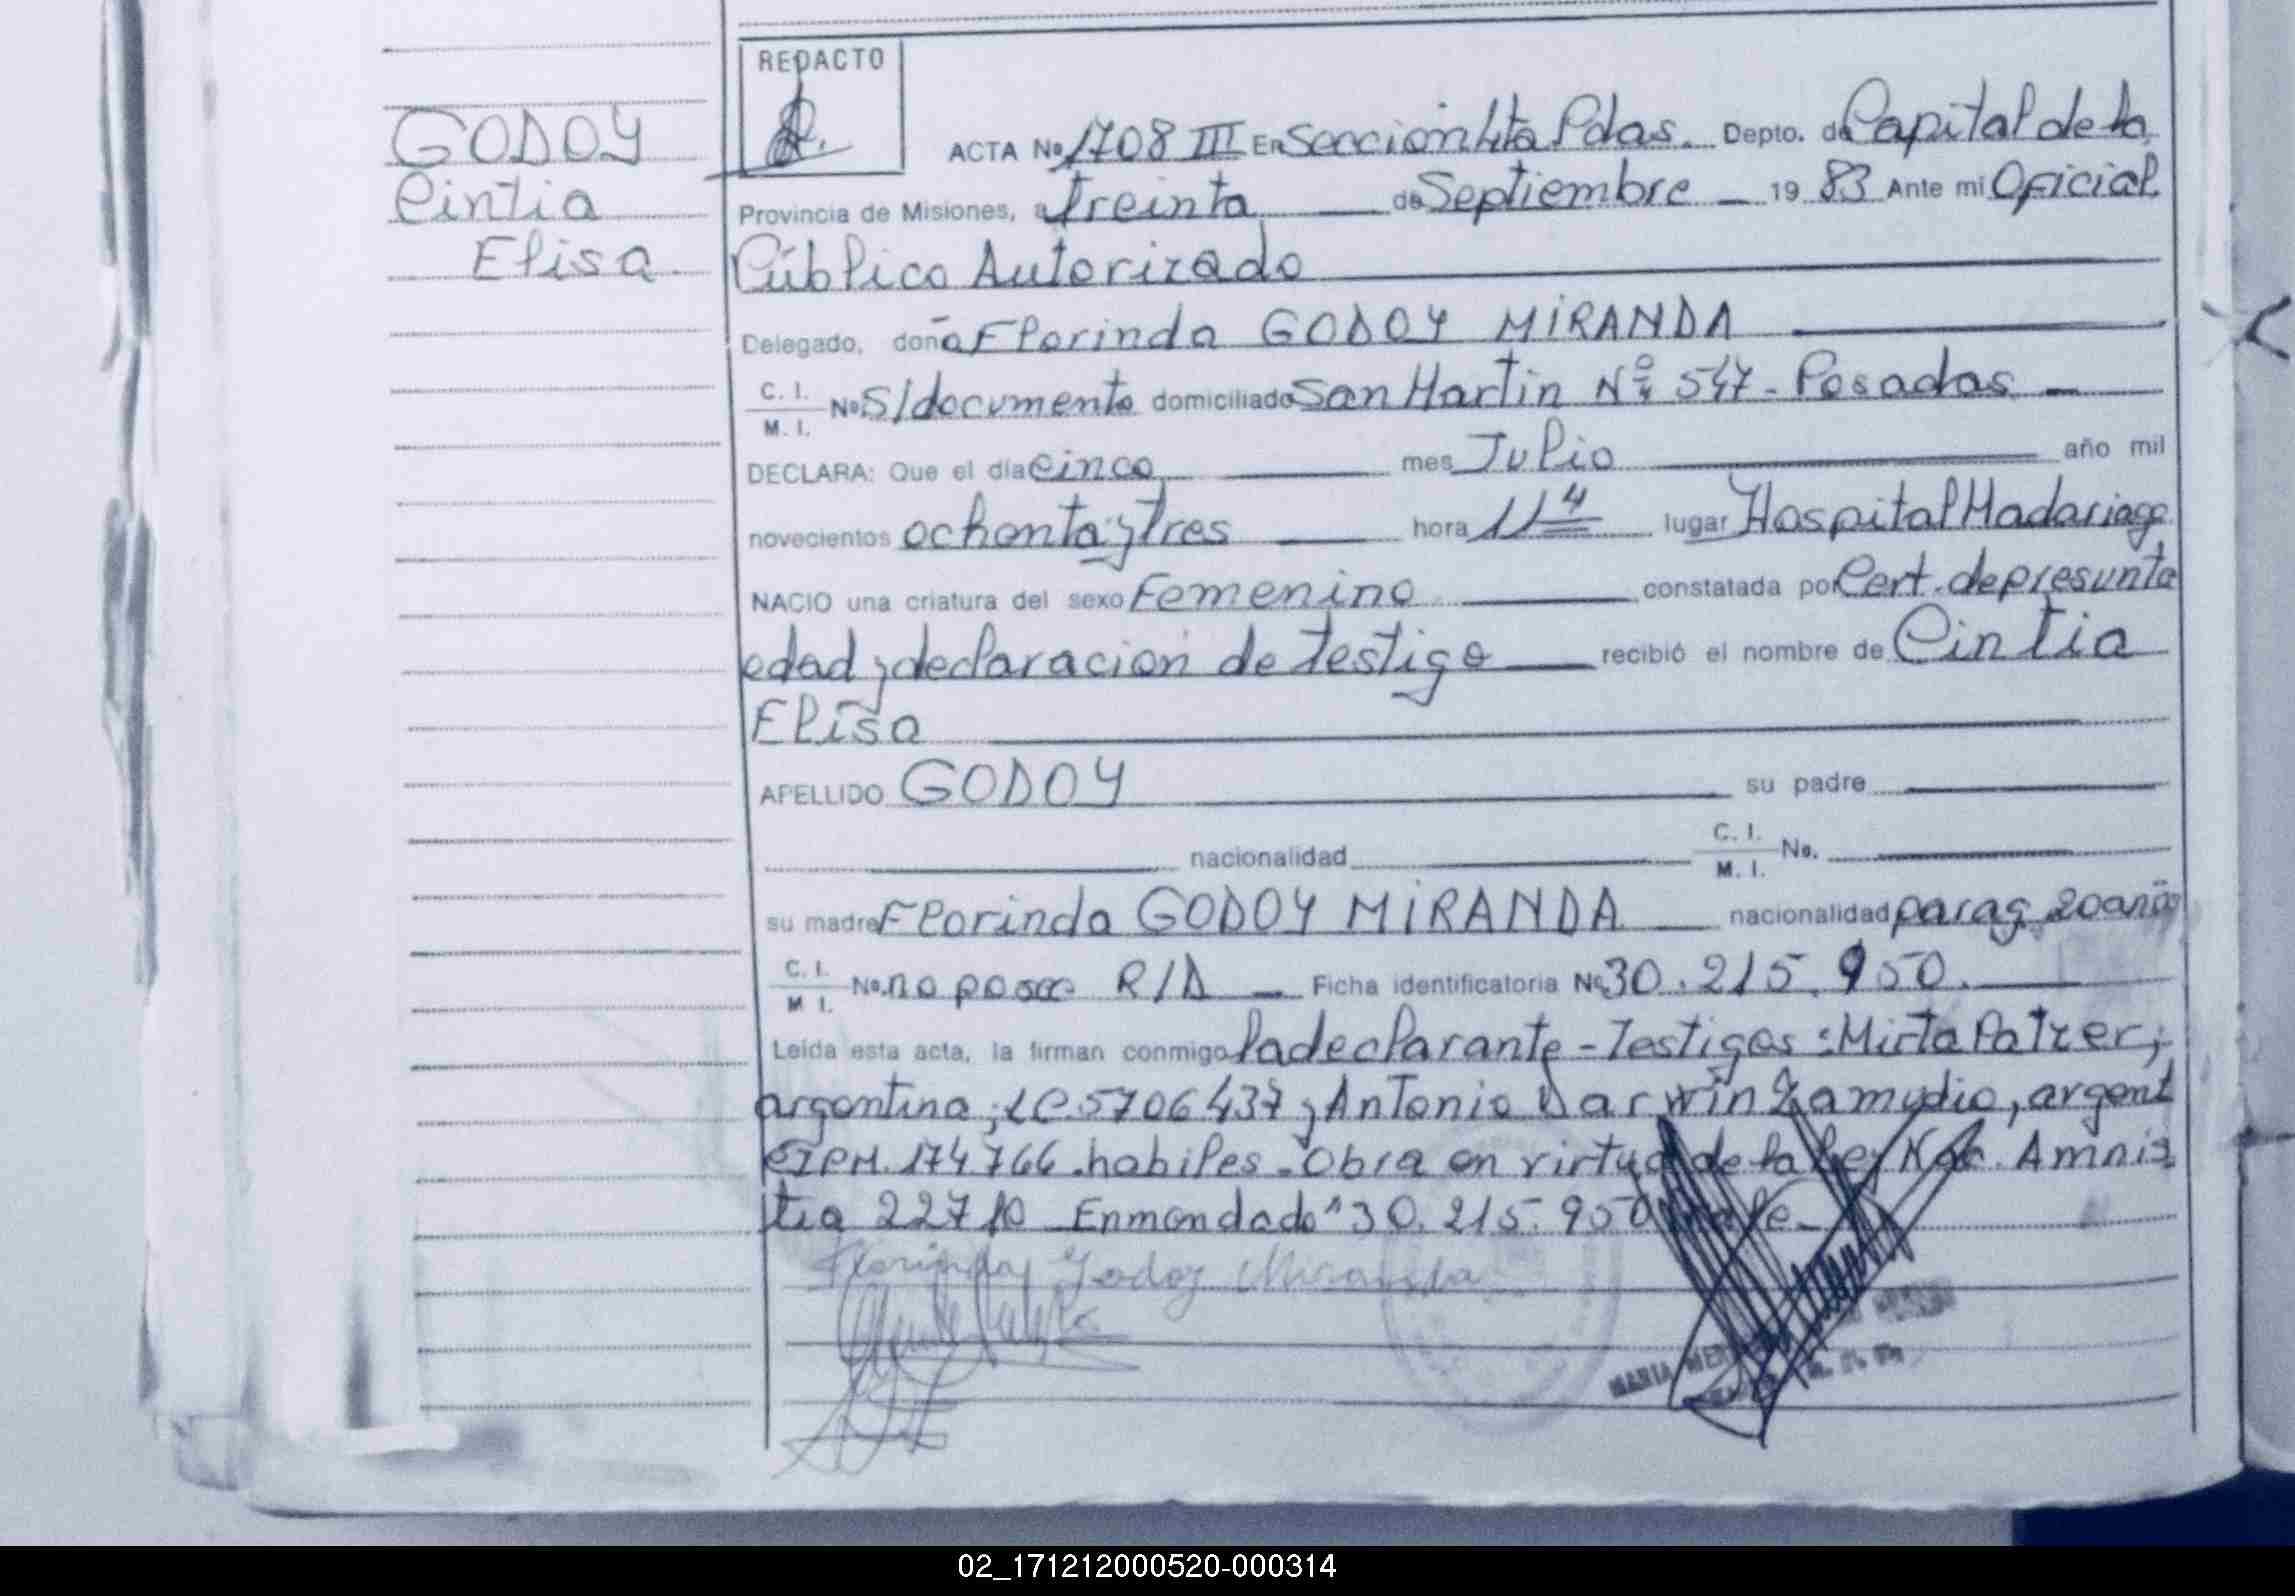 GODOY
Cintia
Elisa
REDACTO
ACTA No 1708 III En Sección 4ta Pdas. Depto. de Capital de la
Provincia de Misiones, a treinta de Septiembre 19 83 Ante mi Oficial
Público Autorizado
Delegado, doña Florinda GODOY MIRANDA
C. I.
M. I. No S/documento domiciliado San Martin Nº 547 - Posadas
DECLARA: Que el día cinco mes Julio año mil
novecientos ochenta y tres hora 11 4 lugar Hospital Madariaga
NACIO una criatura del sexo Femenino constatada por Cert. de presunta
edad y declaracion de testigo recibió el nombre de Cintia
Elisa
APELLIDO GODOY su padre
nacionalidad C. I.
M. I. No.
su madre Florinda GODOY MIRANDA nacionalidad parag 20 años
C. I.
M I. No. no posee R/D Ficha identificatoria No 30.215.950.
Leída esta acta, la firman conmigo la declarante - Testigos: Mirta Patzer,
argentina, LC.5706437 y Antonio Darwin Zamudio, argent
CIPM. 174766. habiles. Obra en virtud de la Ley Nac. Amnis
tia 22710 Enmendado "30.215.950 Vale.
Florinda Godoy Miranda
MARIA
02_171212000520-000314